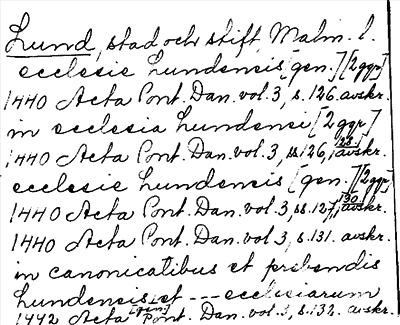 Lund, stad och stift, Malm. l.
ecclesie Lundensis [gen.] [2 ggr]
1440 Acta Pont. Dan. vol. 3, s. 126. avskr.
in ecclesia Lundensi [2 ggr]
1440 Acta Pont. Dan. vol. 3, ss. 126, 123 avskr.
ecclesie Lundensis [gen.] [2 ggr]
1440 Acta Pont. Dan. vol. 3, ss. 127, 130 avskr.
1440 Acta Pont. Dan. vol 3, s. 131. avskr.
in canonicatibus et prebendis
Lundensis [gen.] et --- ecclesiarum
1442 Acta Pont. Dan. vol. 3, s. 132. avskr.